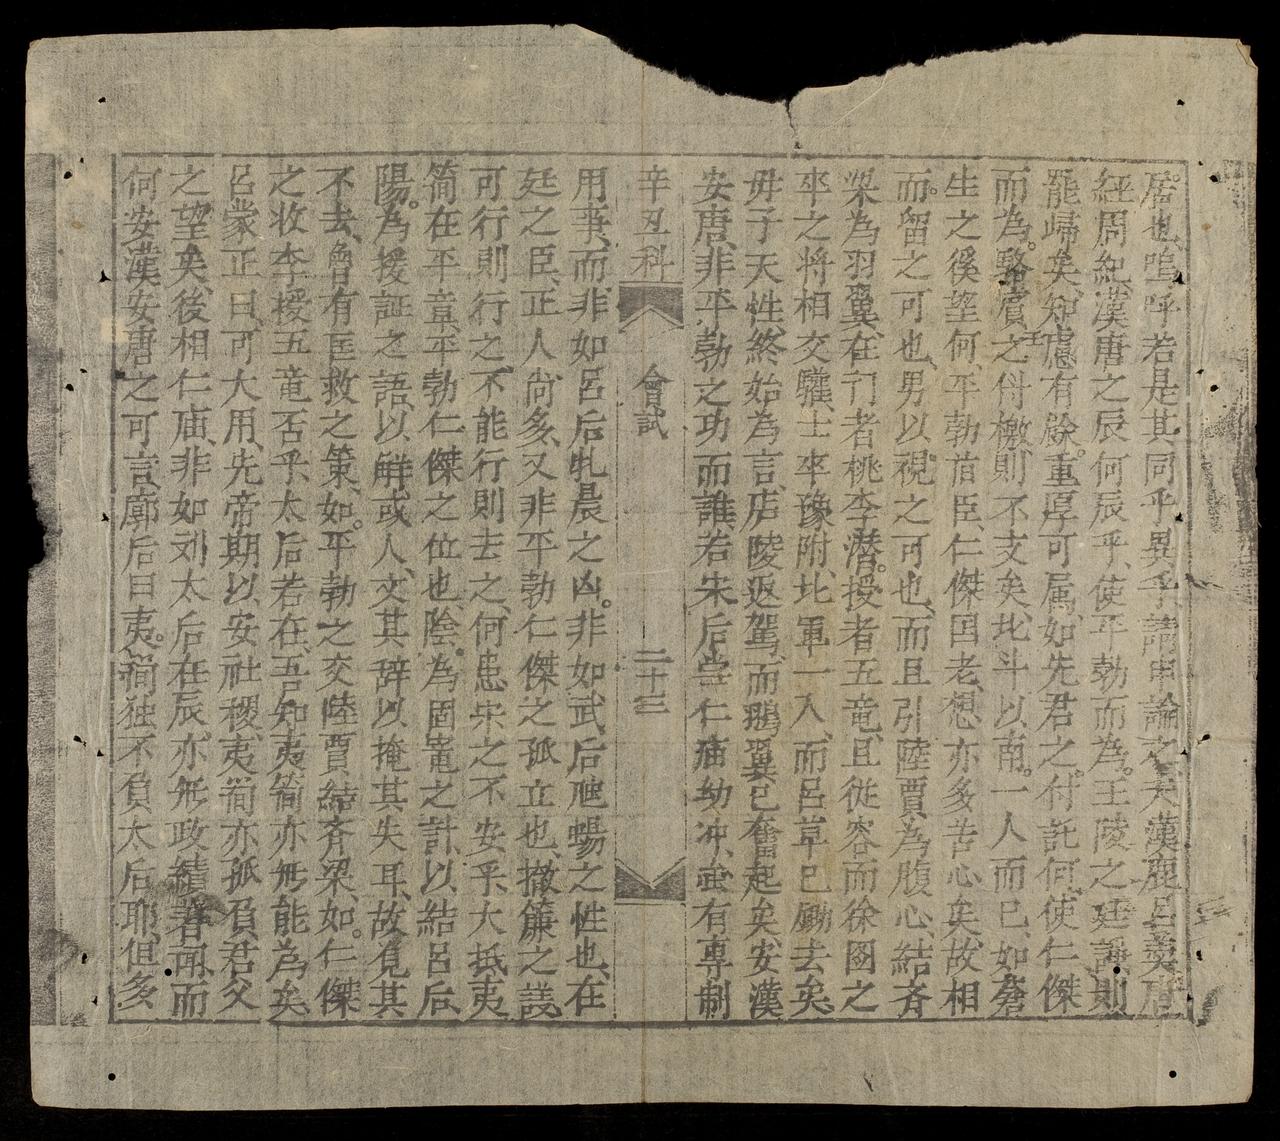 居也嗚呼若是其同乎異乎請申論之夫漢鹿呂羹唐
経周紀漢唐之辰何辰乎使平勃而為王陵之廷諍則
罷歸矣知慮有餘重厚可属如先君之付託何使仁傑
而為駱賓王之付檄則不支矣北斗以南一人而已如蒼
生之徯望何平勃旧臣仁傑国老想亦多苦心矣故相
而留之可也男以視之可也而且引陸賈為腹心結斉
梁為羽翼在门者桃李潜授者五竜且従容而徐圖之
卒之将相交驩士卒豫附北軍一入而呂草已鋤去矣
毋子天性終始為言店陵返駕而鵶翼已奮起矣安漢
安唐非平勃之功而誰若宋后当仁庙幼冲虽有専制
辛丑科 會試 二十三
用事而非如呂后牝晨之凶非如武后虺蜴之性也在
廷之臣正人尚多又非平勃仁傑之孤立也撤簾之議
可行則行之不能行則去之何患宋之不安乎大抵夷
简在平章平勃仁傑之位也陰為固竜之計以結呂后
陽為援証之語以觧或人文其辞以掩其失耳故覓其
不去魯有匡救之策如平勃之交陸賈結斉梁如仁傑
之收李授五竜否乎太后若在吾知夷简亦無能為矣
呂蒙正曰可大用先帝期以安社稷夷简亦孤負君父
之望矣後相仁庙非如刘太后在辰亦無政績著闻而
何安漢安唐之可言廓后曰夷简独不負太后耶但多